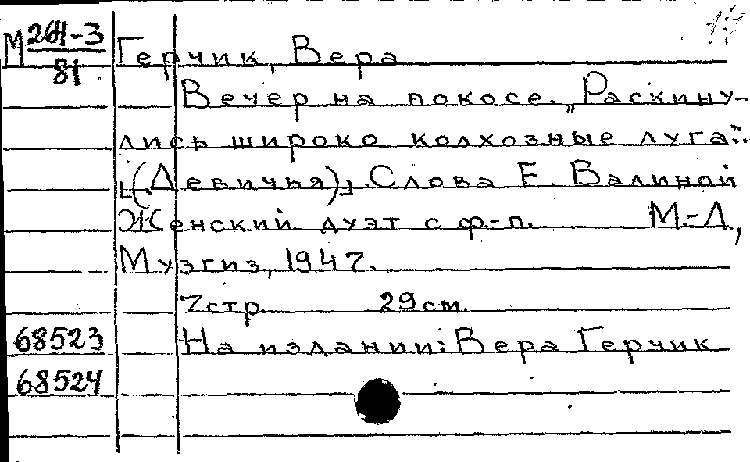 М 264-3
81
Герчик, Вера
Вечер на покосе. „Раскину-
лись широко колхозные луга..."
[(Девичья)]. Слова Е. Валиной
Женский дуэт с ф-п. М.-Л.,
Музгиз, 1947.
7 стр. 29 см.
68523 На издании: Вера Герчик
68524